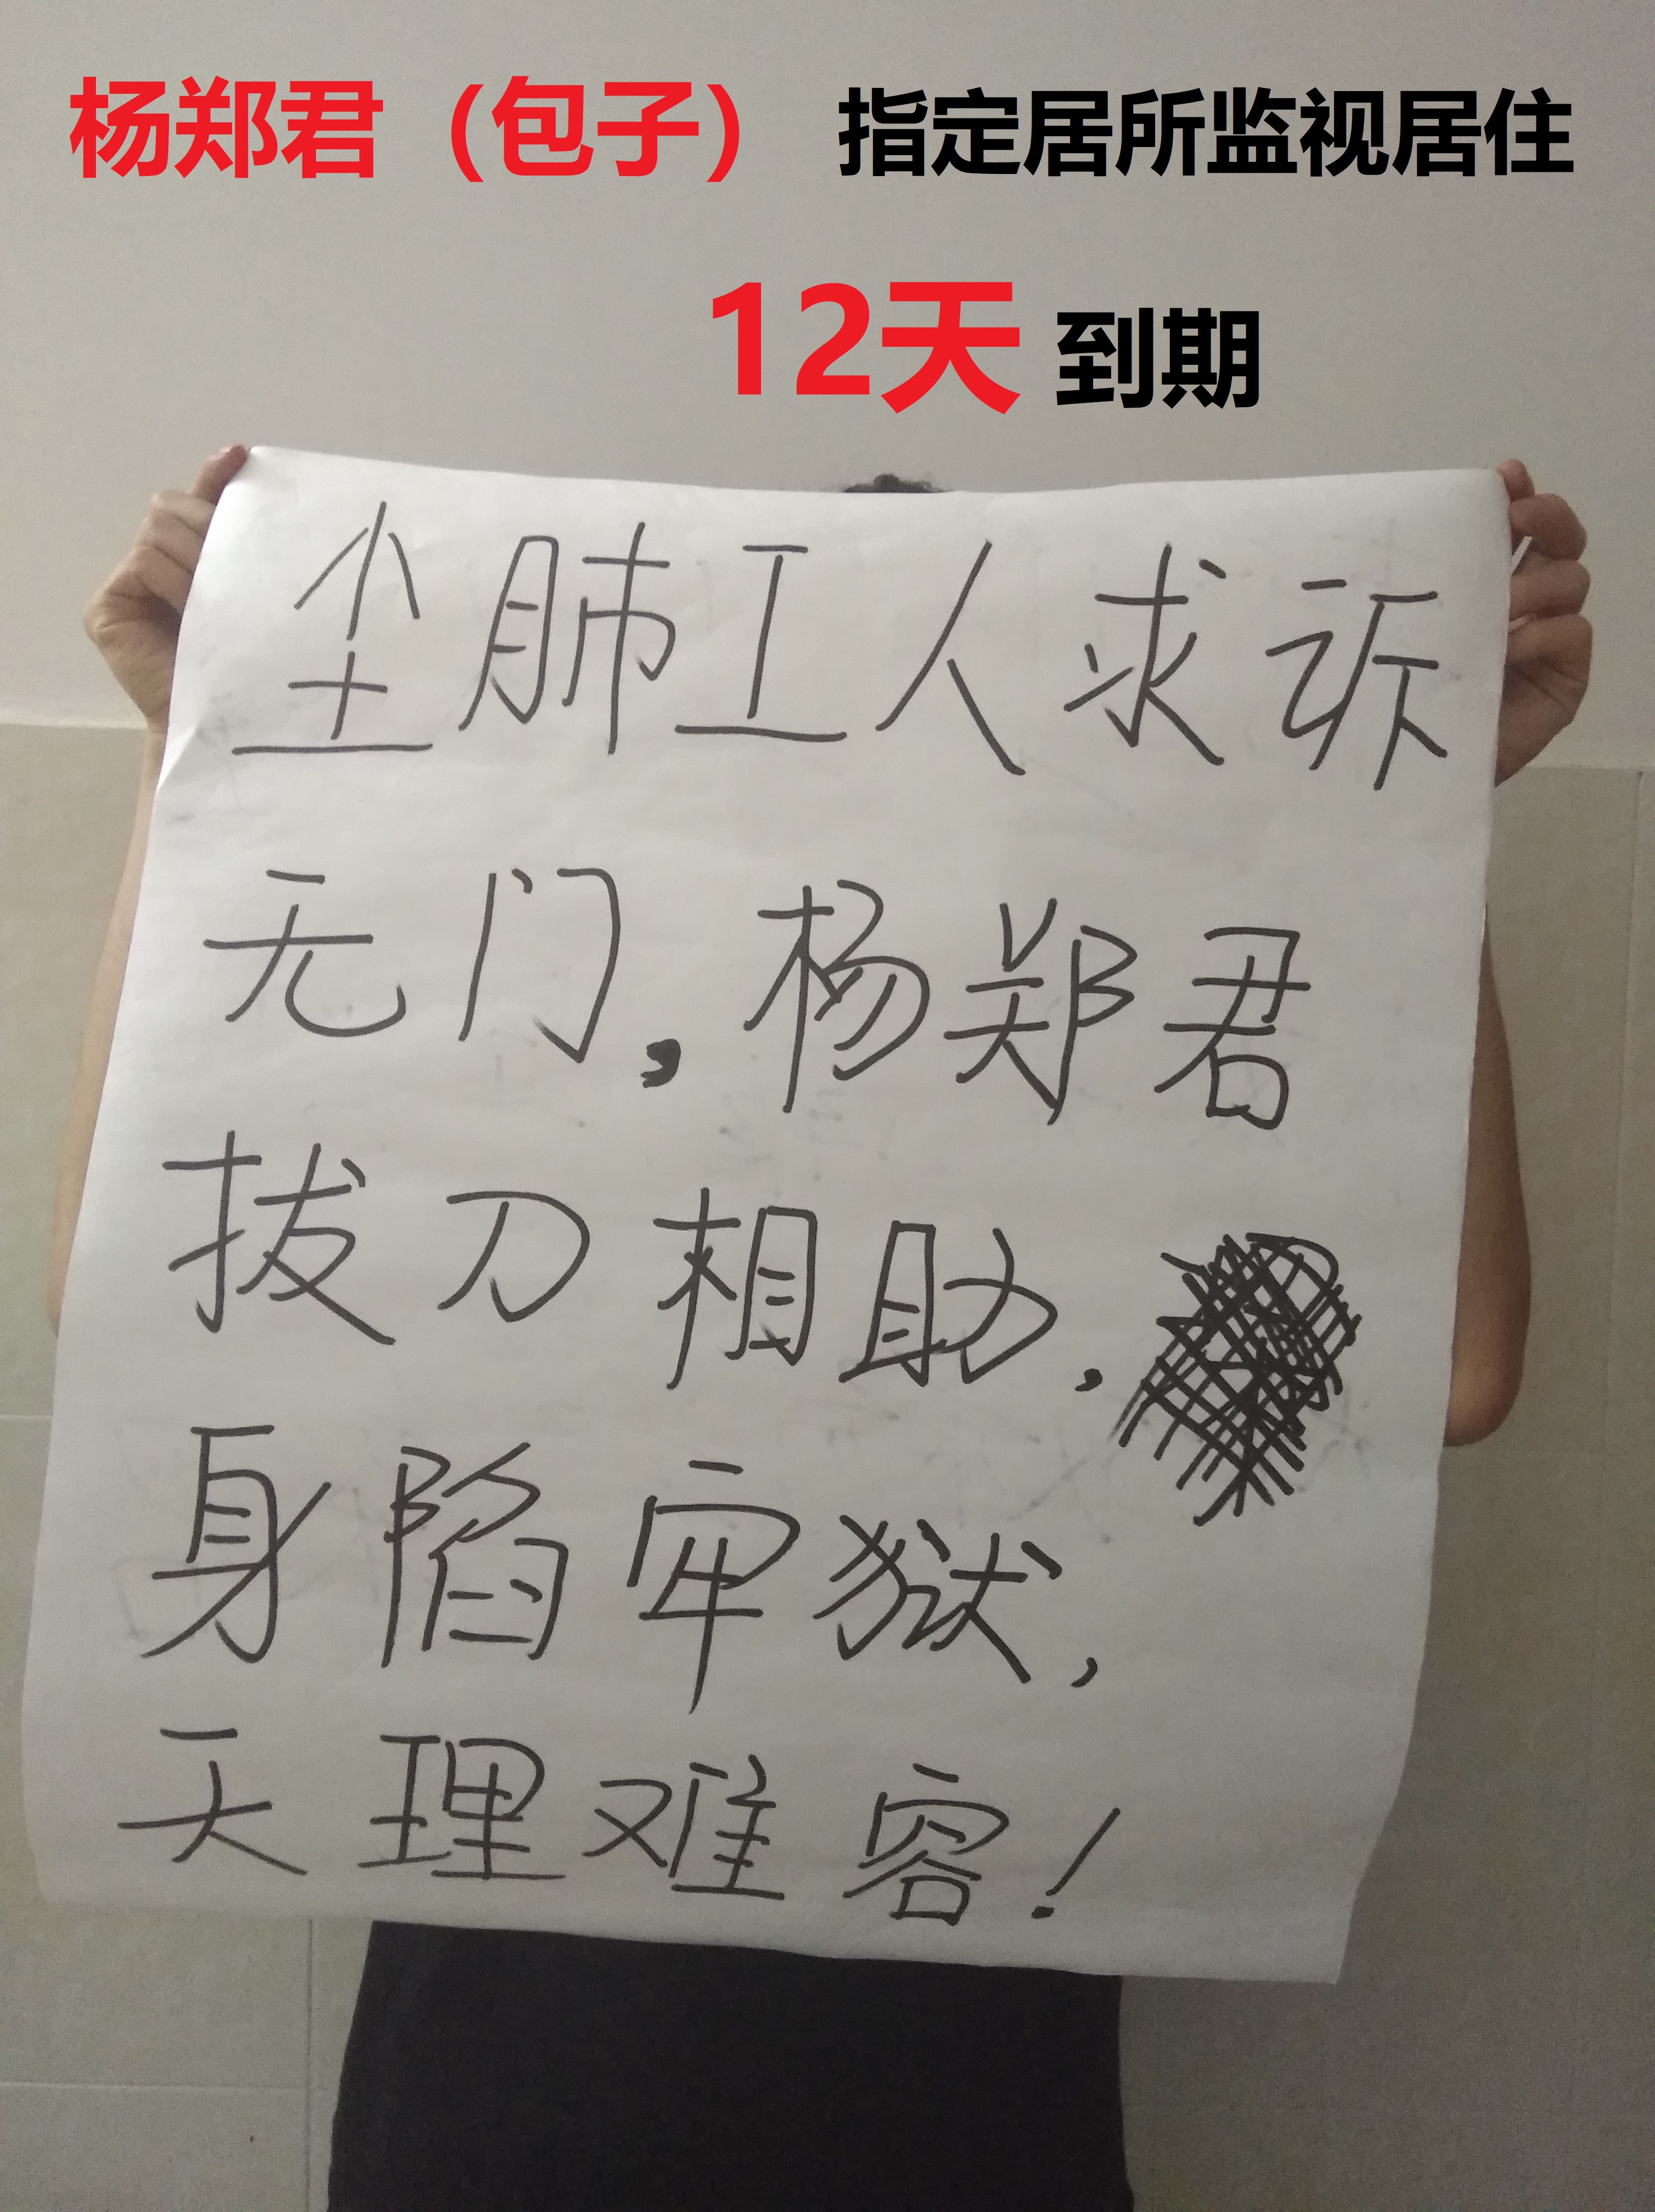 杨郑君（包子） 指定居所监视居住
12天 到期
尘肺工人求诉
无门，杨郑君
拔刀相助，
身陷牢狱，
天理难容！